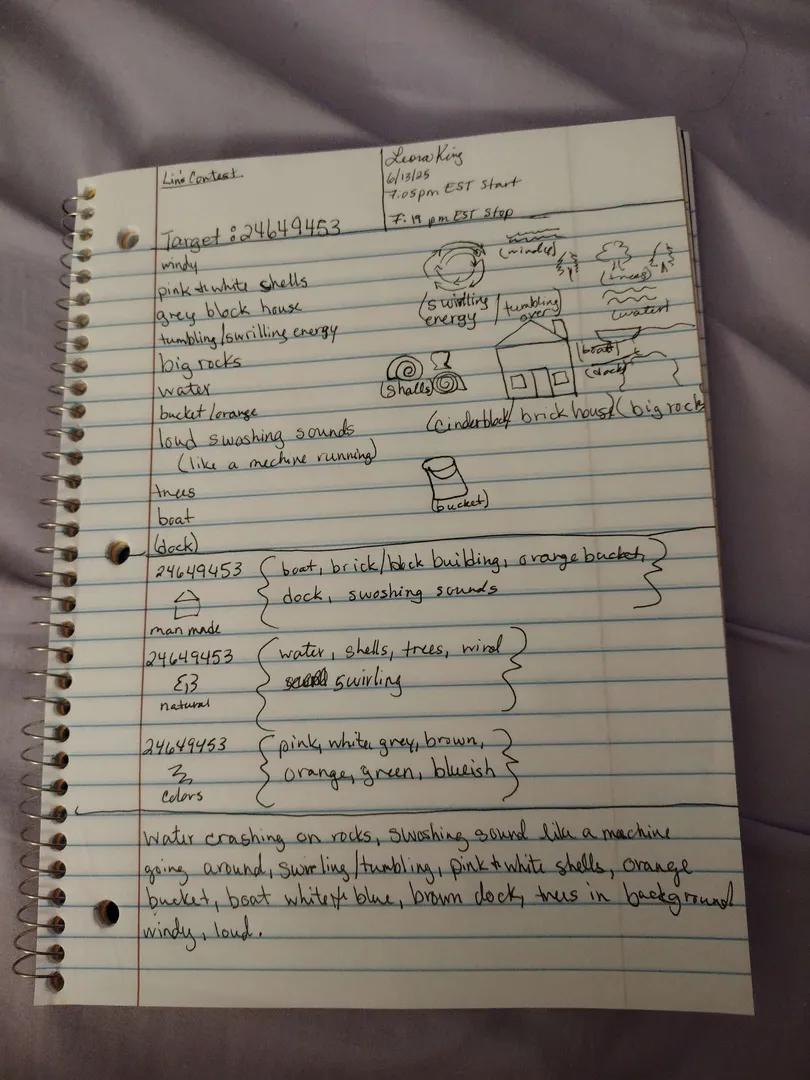 Lin's Contest
Leora King
6/13/25
7:05pm EST Start
7:19 pm EST Stop
Target: 24649453
windy
pink & white shells
grey block house
tumbling/swrilling energy
big rocks
water
bucket/orange
loud swashing sounds
(like a mechine running)
trees
boat
(dock)
(windy)
(trees)
(swirlling energy / tumbling over)
(water)
(boat)
(dock)
(shells)
(cinderblock/ brick house)
(big rocks
(bucket)
24649453
boat, brick/block building, orange bucket,
dock, swoshing sounds
man made
24649453
water, shells, trees, wind
swirling
natural
24649453
pink, white, grey, brown,
orange, green, blueish
colors
Water crashing on rocks, swoshing sound like a machine
going around, swirling/tumbling, pink & white shells, orange
bucket, boat white & blue, brown dock, trees in background
windy, loud.